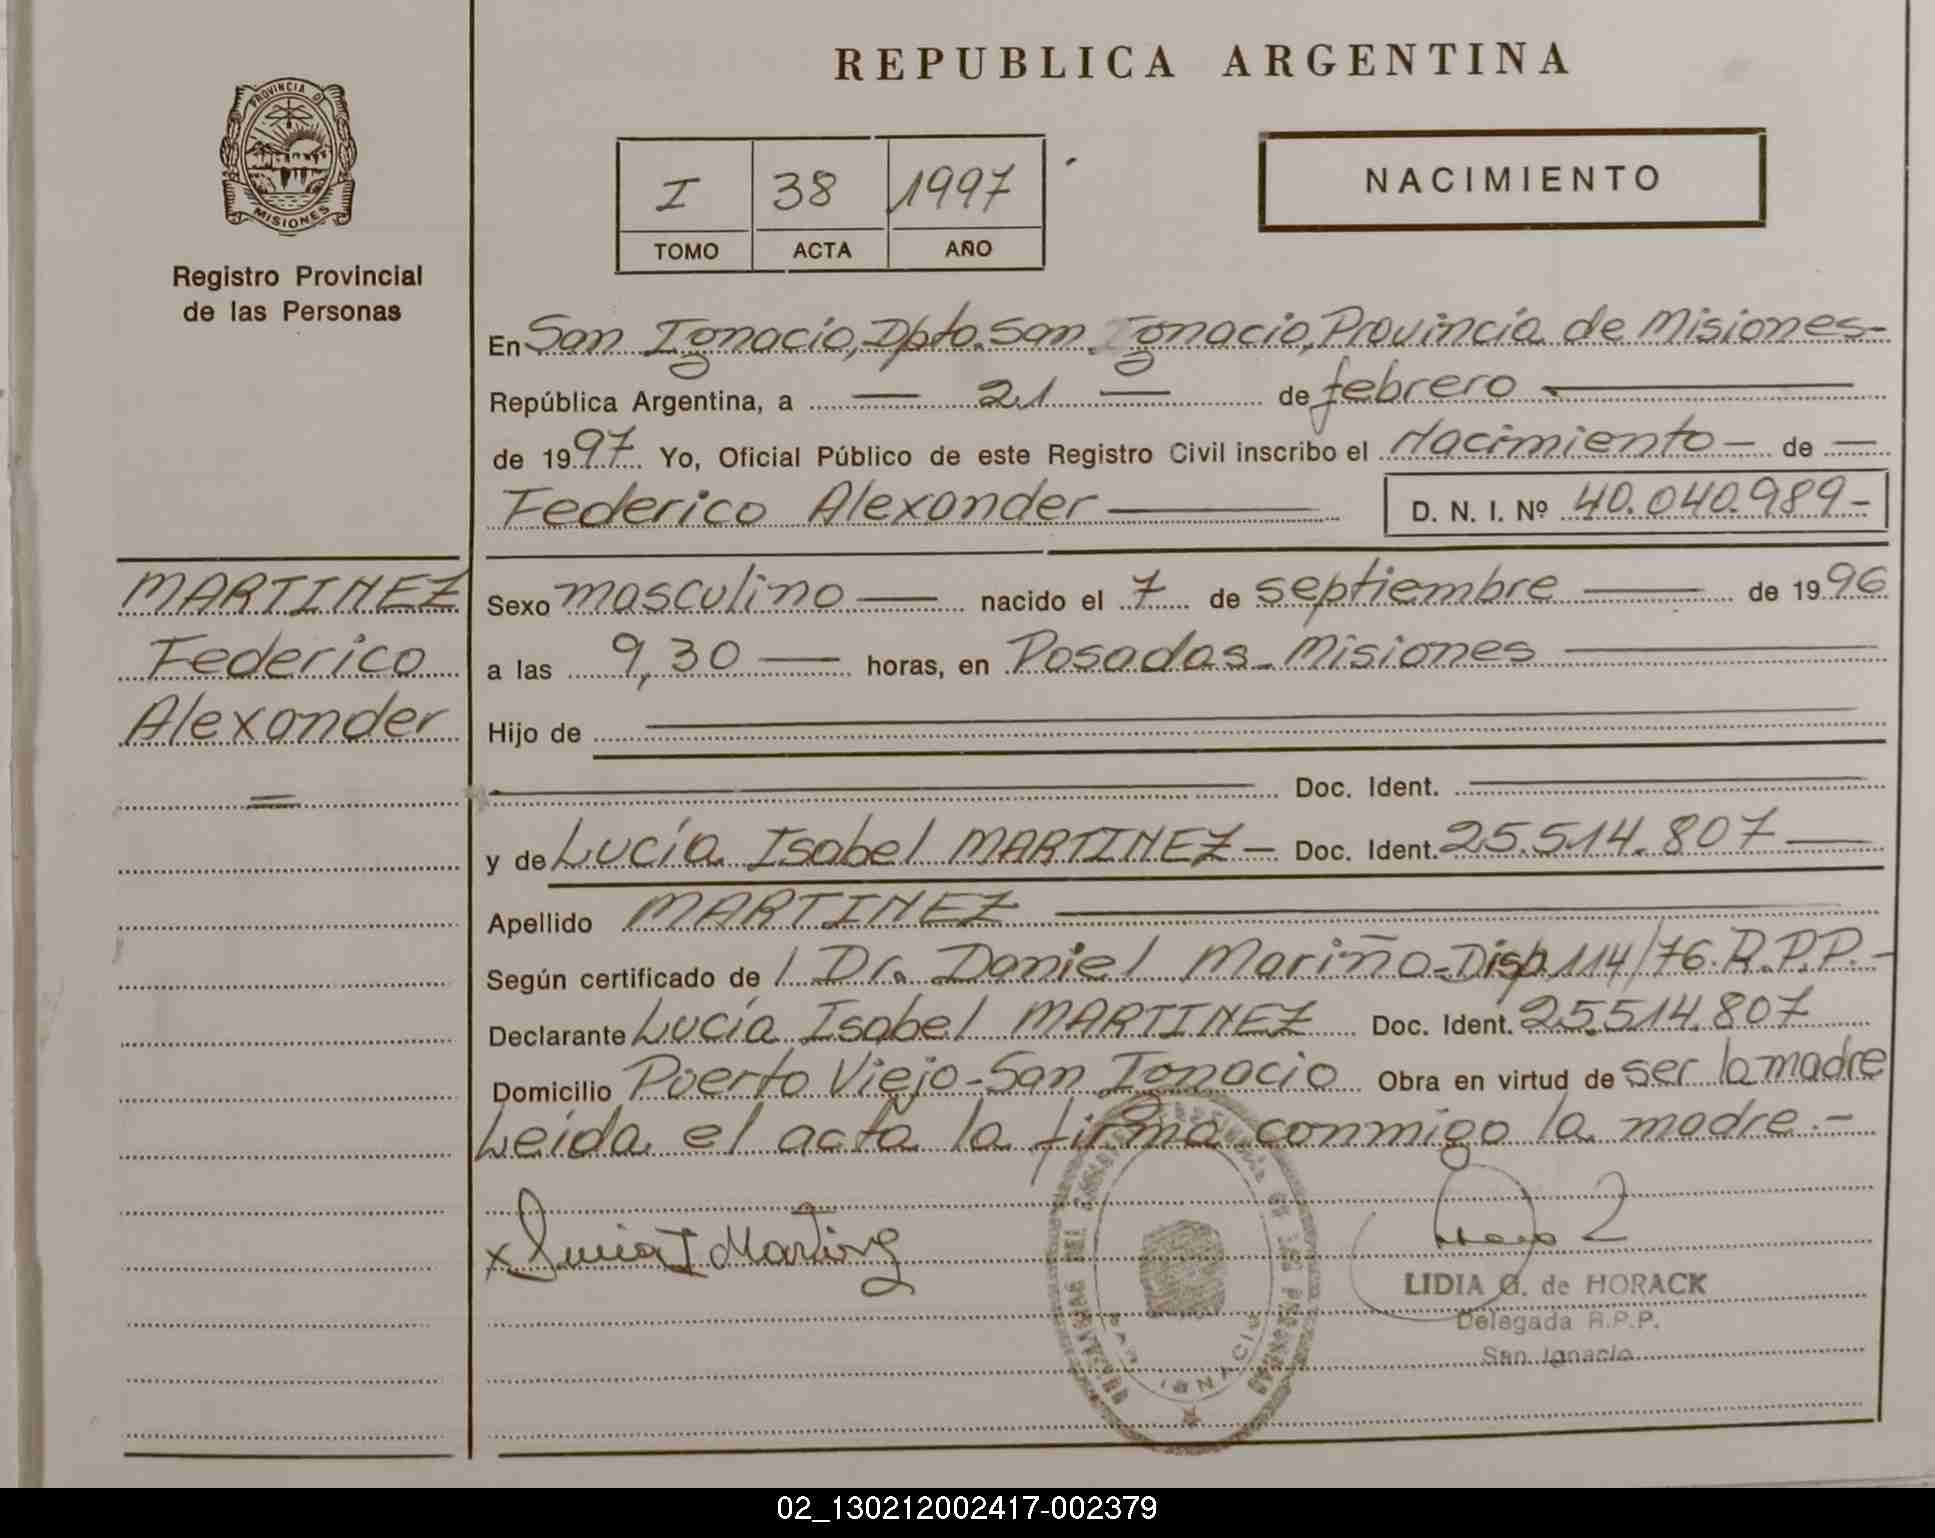 REPUBLICA ARGENTINA
PROVINCIA D
MISIONES
Registro Provincial
de las Personas
I 38 1997
TOMO ACTA AÑO
NACIMIENTO
En San Ignacio, Dpto. San Ignacio, Provincia de Misiones-
República Argentina, a — 21 — de febrero —
de 1997 Yo, Oficial Público de este Registro Civil inscribo el Nacimiento — de —
Federico Alexander — D. N. I. Nº 40.040.989-
MARTINEZ
Federico
Alexander
=
Sexo masculino — nacido el 7 de septiembre — de 1996
a las 9,30 — horas, en Posadas - Misiones —
Hijo de —
— Doc. Ident. —
y de Lucía Isabel MARTINEZ — Doc. Ident. 25.514.807 —
Apellido MARTINEZ —
Según certificado de / Dr. Daniel Mariño - Disp. 114/76. R.P.P. -
Declarante Lucía Isabel MARTINEZ Doc. Ident. 25.514.807
Domicilio Puerto Viejo - San Ignacio Obra en virtud de ser la madre
Leída el acta la firma conmigo la madre.-
x Lucia I Martinez
LIDIA G. de HORACK
Delegada R.P.P.
San Ignacio
IGNACIO
02_130212002417-002379